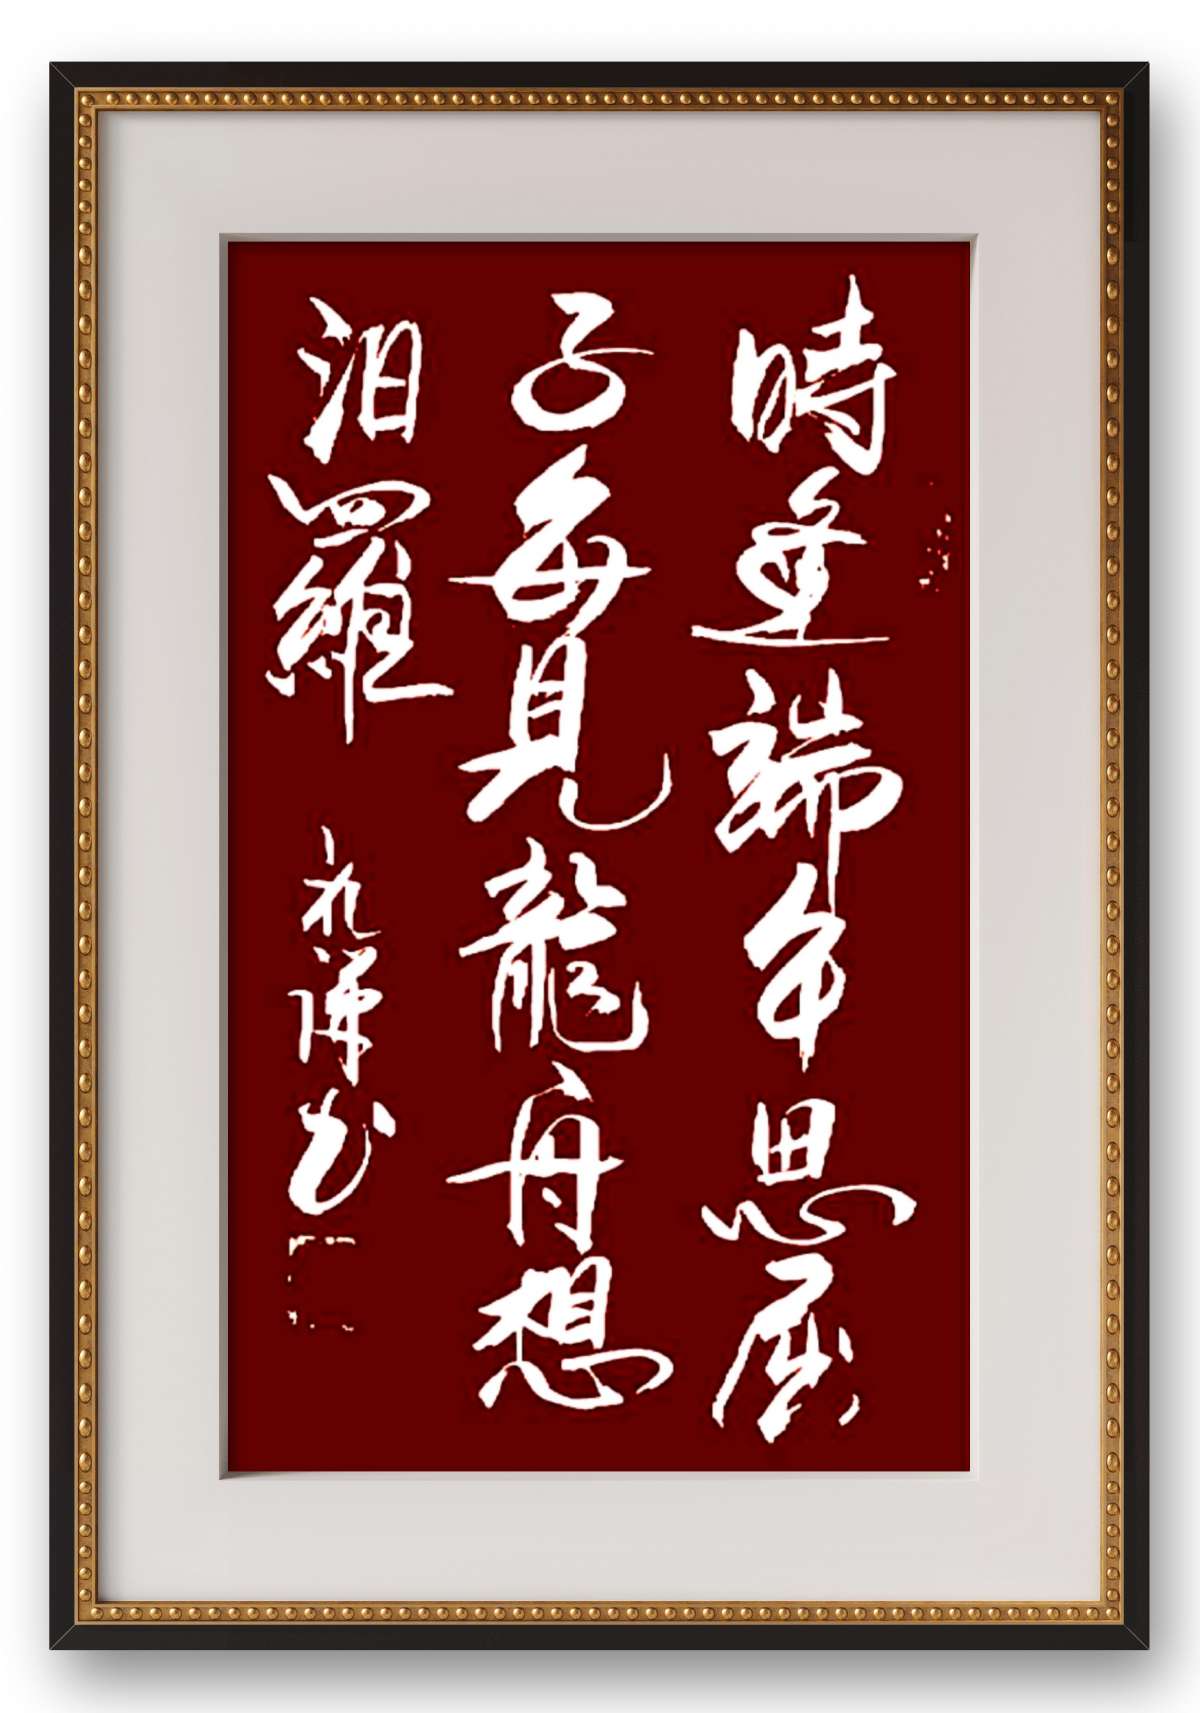 時逢端午思屈
子每見龍舟想
汨羅